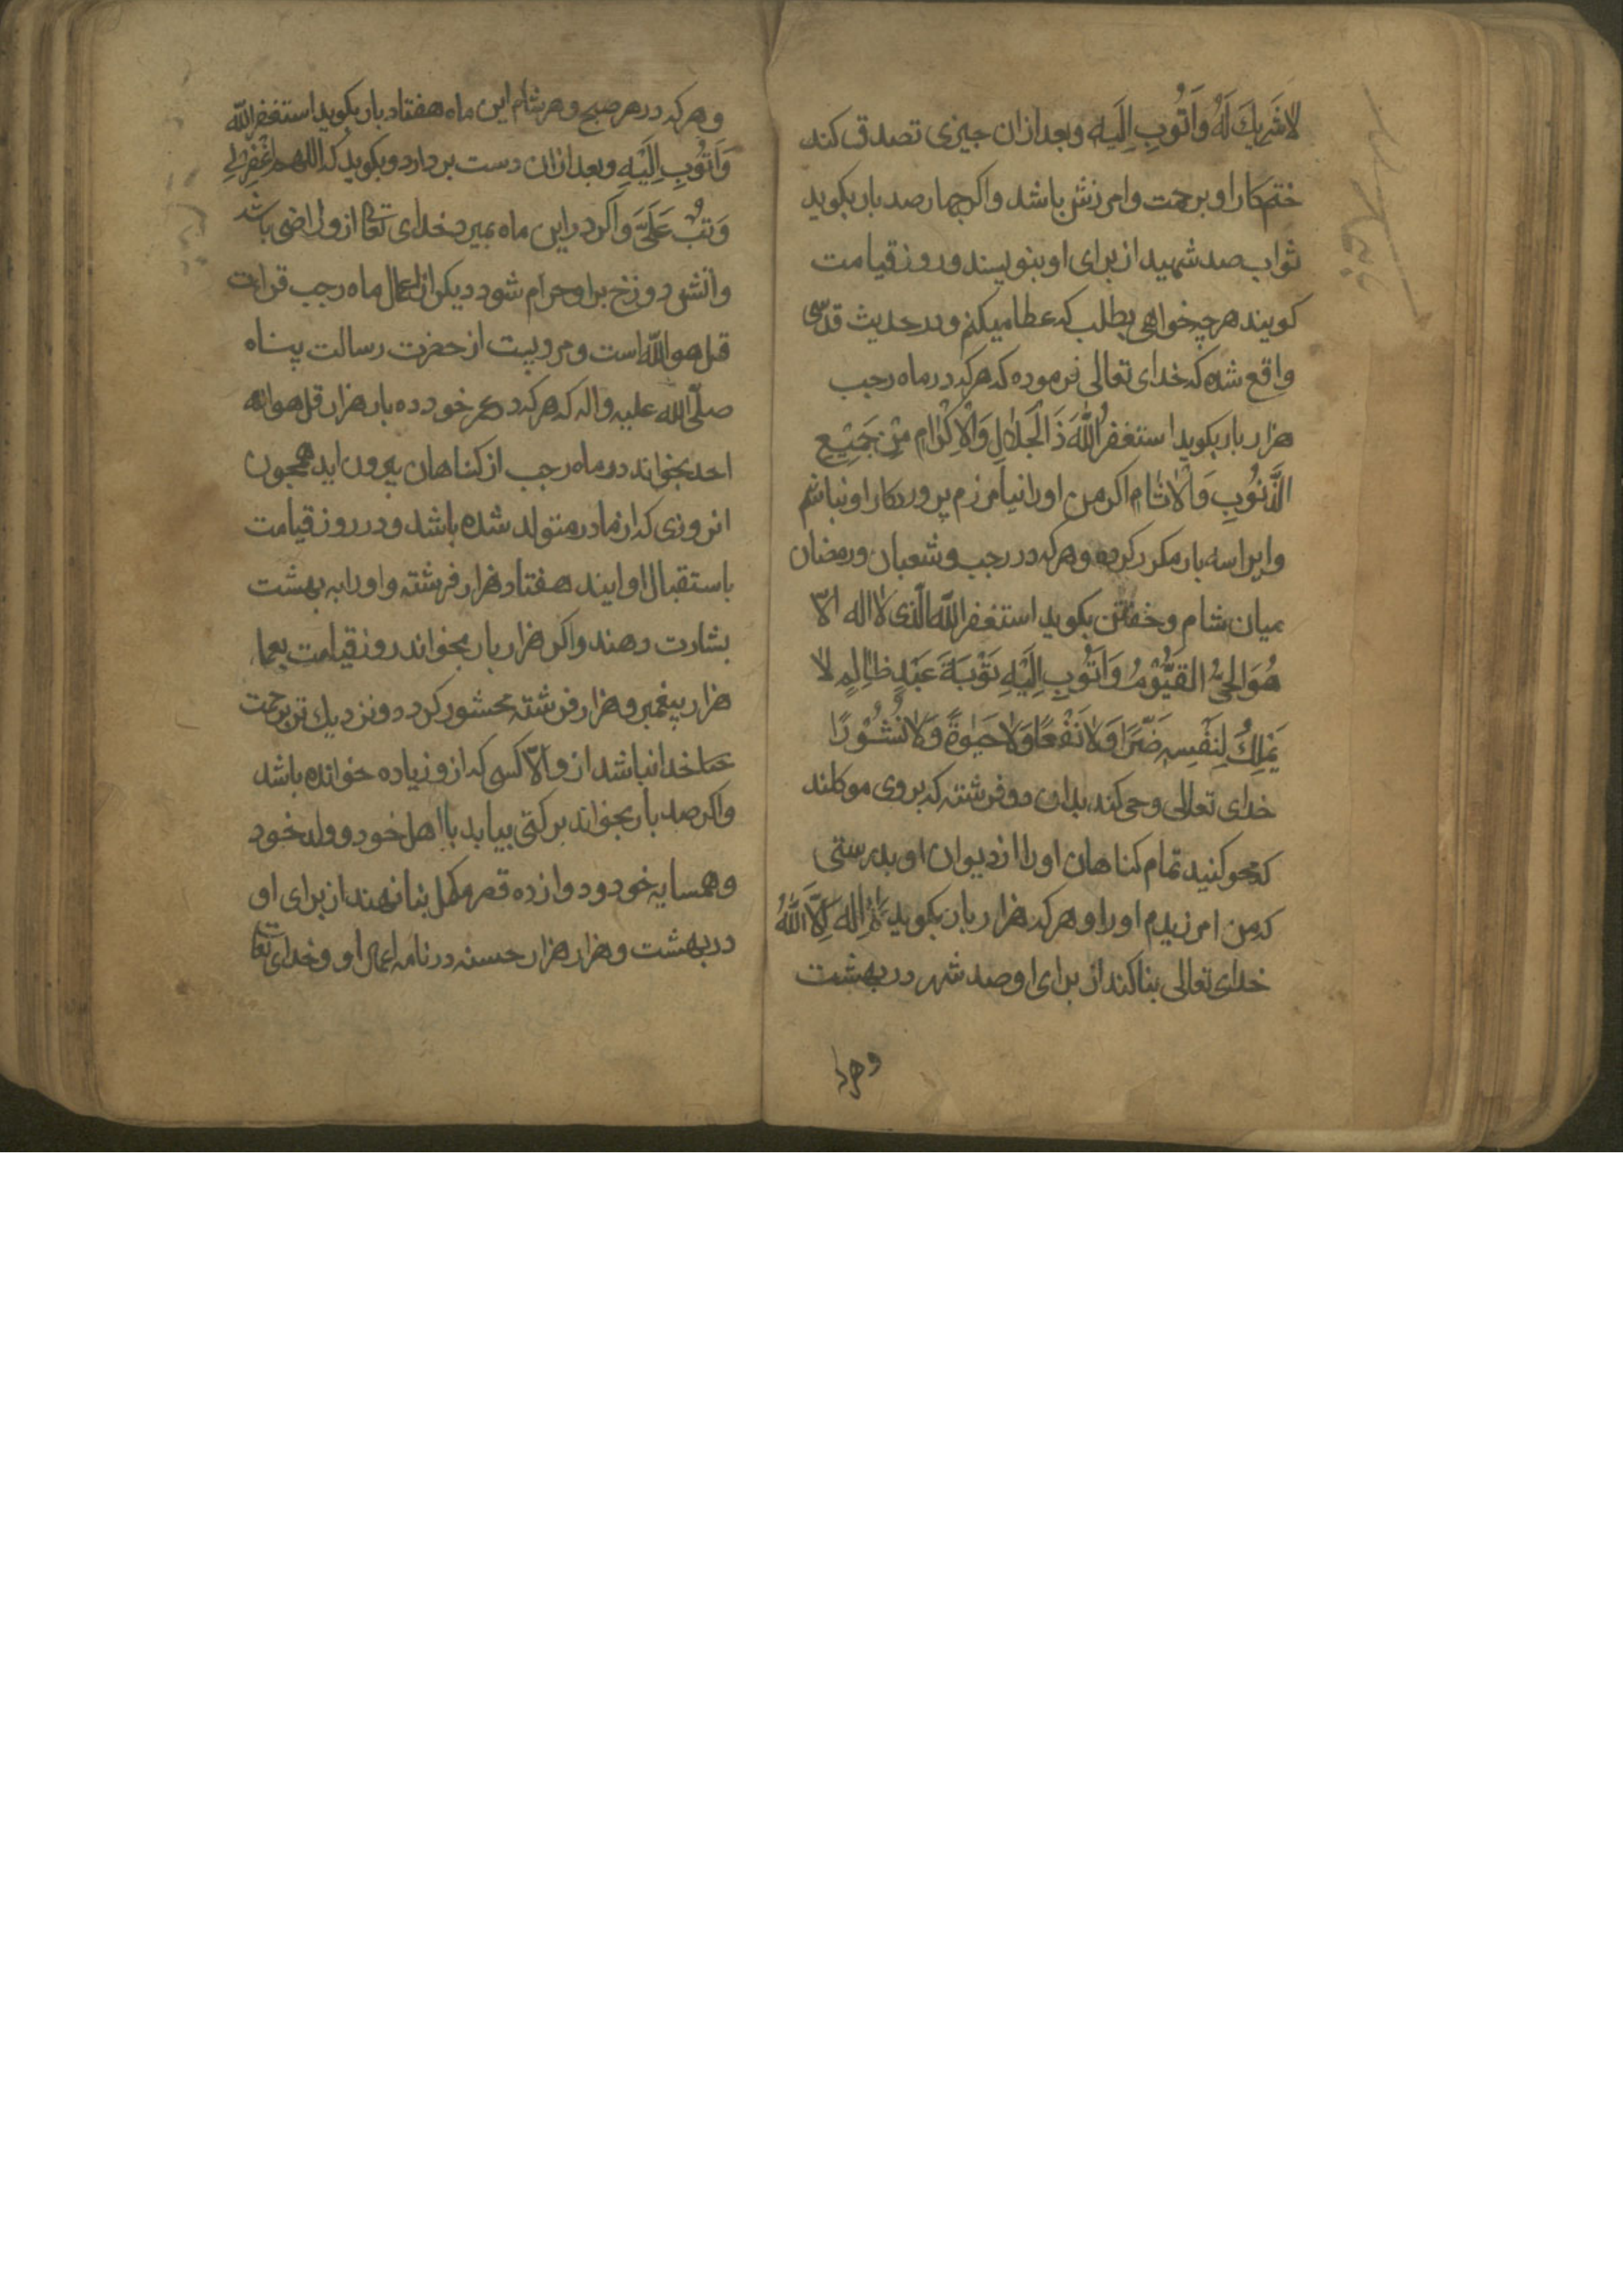 لا شَرِيكَ لَهُ وَاَتُوبِ اِلَيهِ وبعد ازان جيزى تصدق كند
ختم كار او برحمت وامرزش باشد واكر چهارصد بار بكويد
ثواب صد شهيد از براى او بنويسند ور وز قيامت
كويند هر چه خواهى بطلب كه عطا ميكنم ودر حديث قدسى
واقع شده كه خداى تعالى فرموده كه هر كه در ماه رجب
هزار بار بكويد استغفر اللهَ ذَا لْجَلاٰلِ وَالْاِكْرٰام مِنْ جَمَيْعِ
الذَّنُوُبِ وَالْاٰثٰامِ اكر من او را نيامرزم پروردكار او نباشم
واين را سه بار مكرر كرده وهر كه در رجب وشعبان ورمضان
ميان شام وخفتن بكويد استغفر الله الّذى لا اله الاّ
هُوَ الحَىُّ القَيُّوْمُ وَاَتُوُبِ اِلَيْهِ تَوْبَةَ عَبْدٍ ظٰالِمٍ لا
يَمْلِكُ لِنَفْسِهِ ضَرًّا وَلاٰ نَفْعًا وَلاٰ حَيٰوةً وَلاٰ نُشُوْرًا
خداى تعالى وحى كند بدان دو فرشته كه بروى موكلند
كه محو كنيد تمام كناهان او را از ديوان او بدرستى
كه من امرزيدم او را وهر كه هزار بار بكويد لاٰ اِله اِلاَّ اللهُ
خداى تعالى بنا كند از براى او صد شهر در بهشت
وهر كه در هر صبح وهر شام اين ماه هفتاد بار بكويد استغفر الله
وَاَتُوُبِ اِلَيْهِ وبعد ازان دست بردارد وبكويد كه اللهم اغْفِرْلِى
وَتُبْ عَلَىَّ واكر در اين ماه بميرد خداى تعا ازو راضى باشد
واتش دوزخ براو حرام شود ديكر از اعمال ماه رجب قراءت
قل هو الله است ومرويست از حضرت رسالت پناه
صلّى الله عليه واله كه هر كه در عمر خود ده بار هزار قل هو الله
احد بخواند در ماه رجب از كناهان بيرون ايد همچون
انروزى كه از مادر متولد شده باشد ودر روز قيامت
باستقبال او ايند هفتاد هزار فرشته واورا به بهشت
بشارت دهند واكر هزار بار بخواند روز قيامت بعمل
هزار پيغمبر وهزار فرشته محشور كردد ونزديك تر برحمت
خدا نباشد ازو الاّ كسى كه ازو زياده خوانده باشد
واكر صد بار بخواند بركتى بيابد با اهل خود وولد خود
وهمسايه خود ودوازده قصر مكمل بنا نهند از براى او
در بهشت وهزار هزار حسنه در نامه اعمال او وخداى تعا